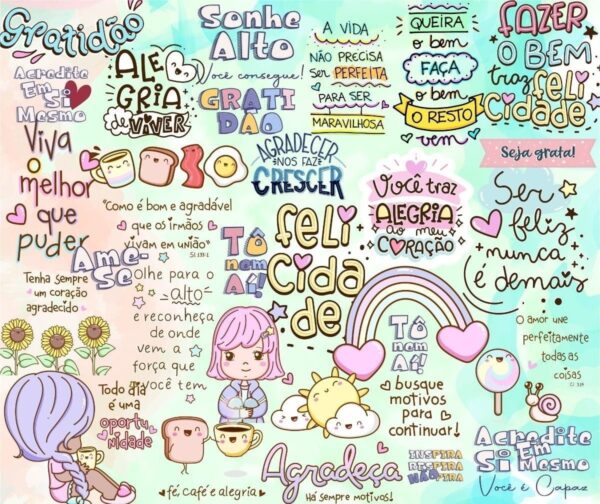 Gratidão
Acredite
Em Si
Mesmo
ALE
GRIA
de VIVER
Sonhe
Alto
Você consegue!
GRATI
DÃO
A VIDA
NÃO PRECISA
Ser PERFEITA
PARA SER
MARAVILHOSA
QUEIRA
o bem
FAÇA
o bem
O RESTO
vem
FAZER
O BEM
traz
FELI
CIDADE
Seja grata!
Viva
o
melhor
que
puder
AGRADECER
NOS FAZ
CRESCER
Você traz
ALEGRIA
ao meu
CORAÇÃO
Ser
feliz
nunca
é demais
"Como é bom e agradável
que os irmãos
vivam em união"
Sl 133:1
Tô
nem
Aí!
feli
cida
de
Ame-
Se
Tenha sempre
um coração
agradecido
olhe para o
alto
e reconheça
de onde
vem a
força que
você tem
Tô
nem
Aí!
O amor une
perfeitamente
todas as
coisas
busque
motivos
para
continuar!
Todo dia
é uma
oportu
nidade
fé, café e alegria
Agradeça
Há sempre motivos!
INSPIRA
RESPIRA
NÃO PIRA
Acredite
Em
Si Mesmo
Você é Capaz